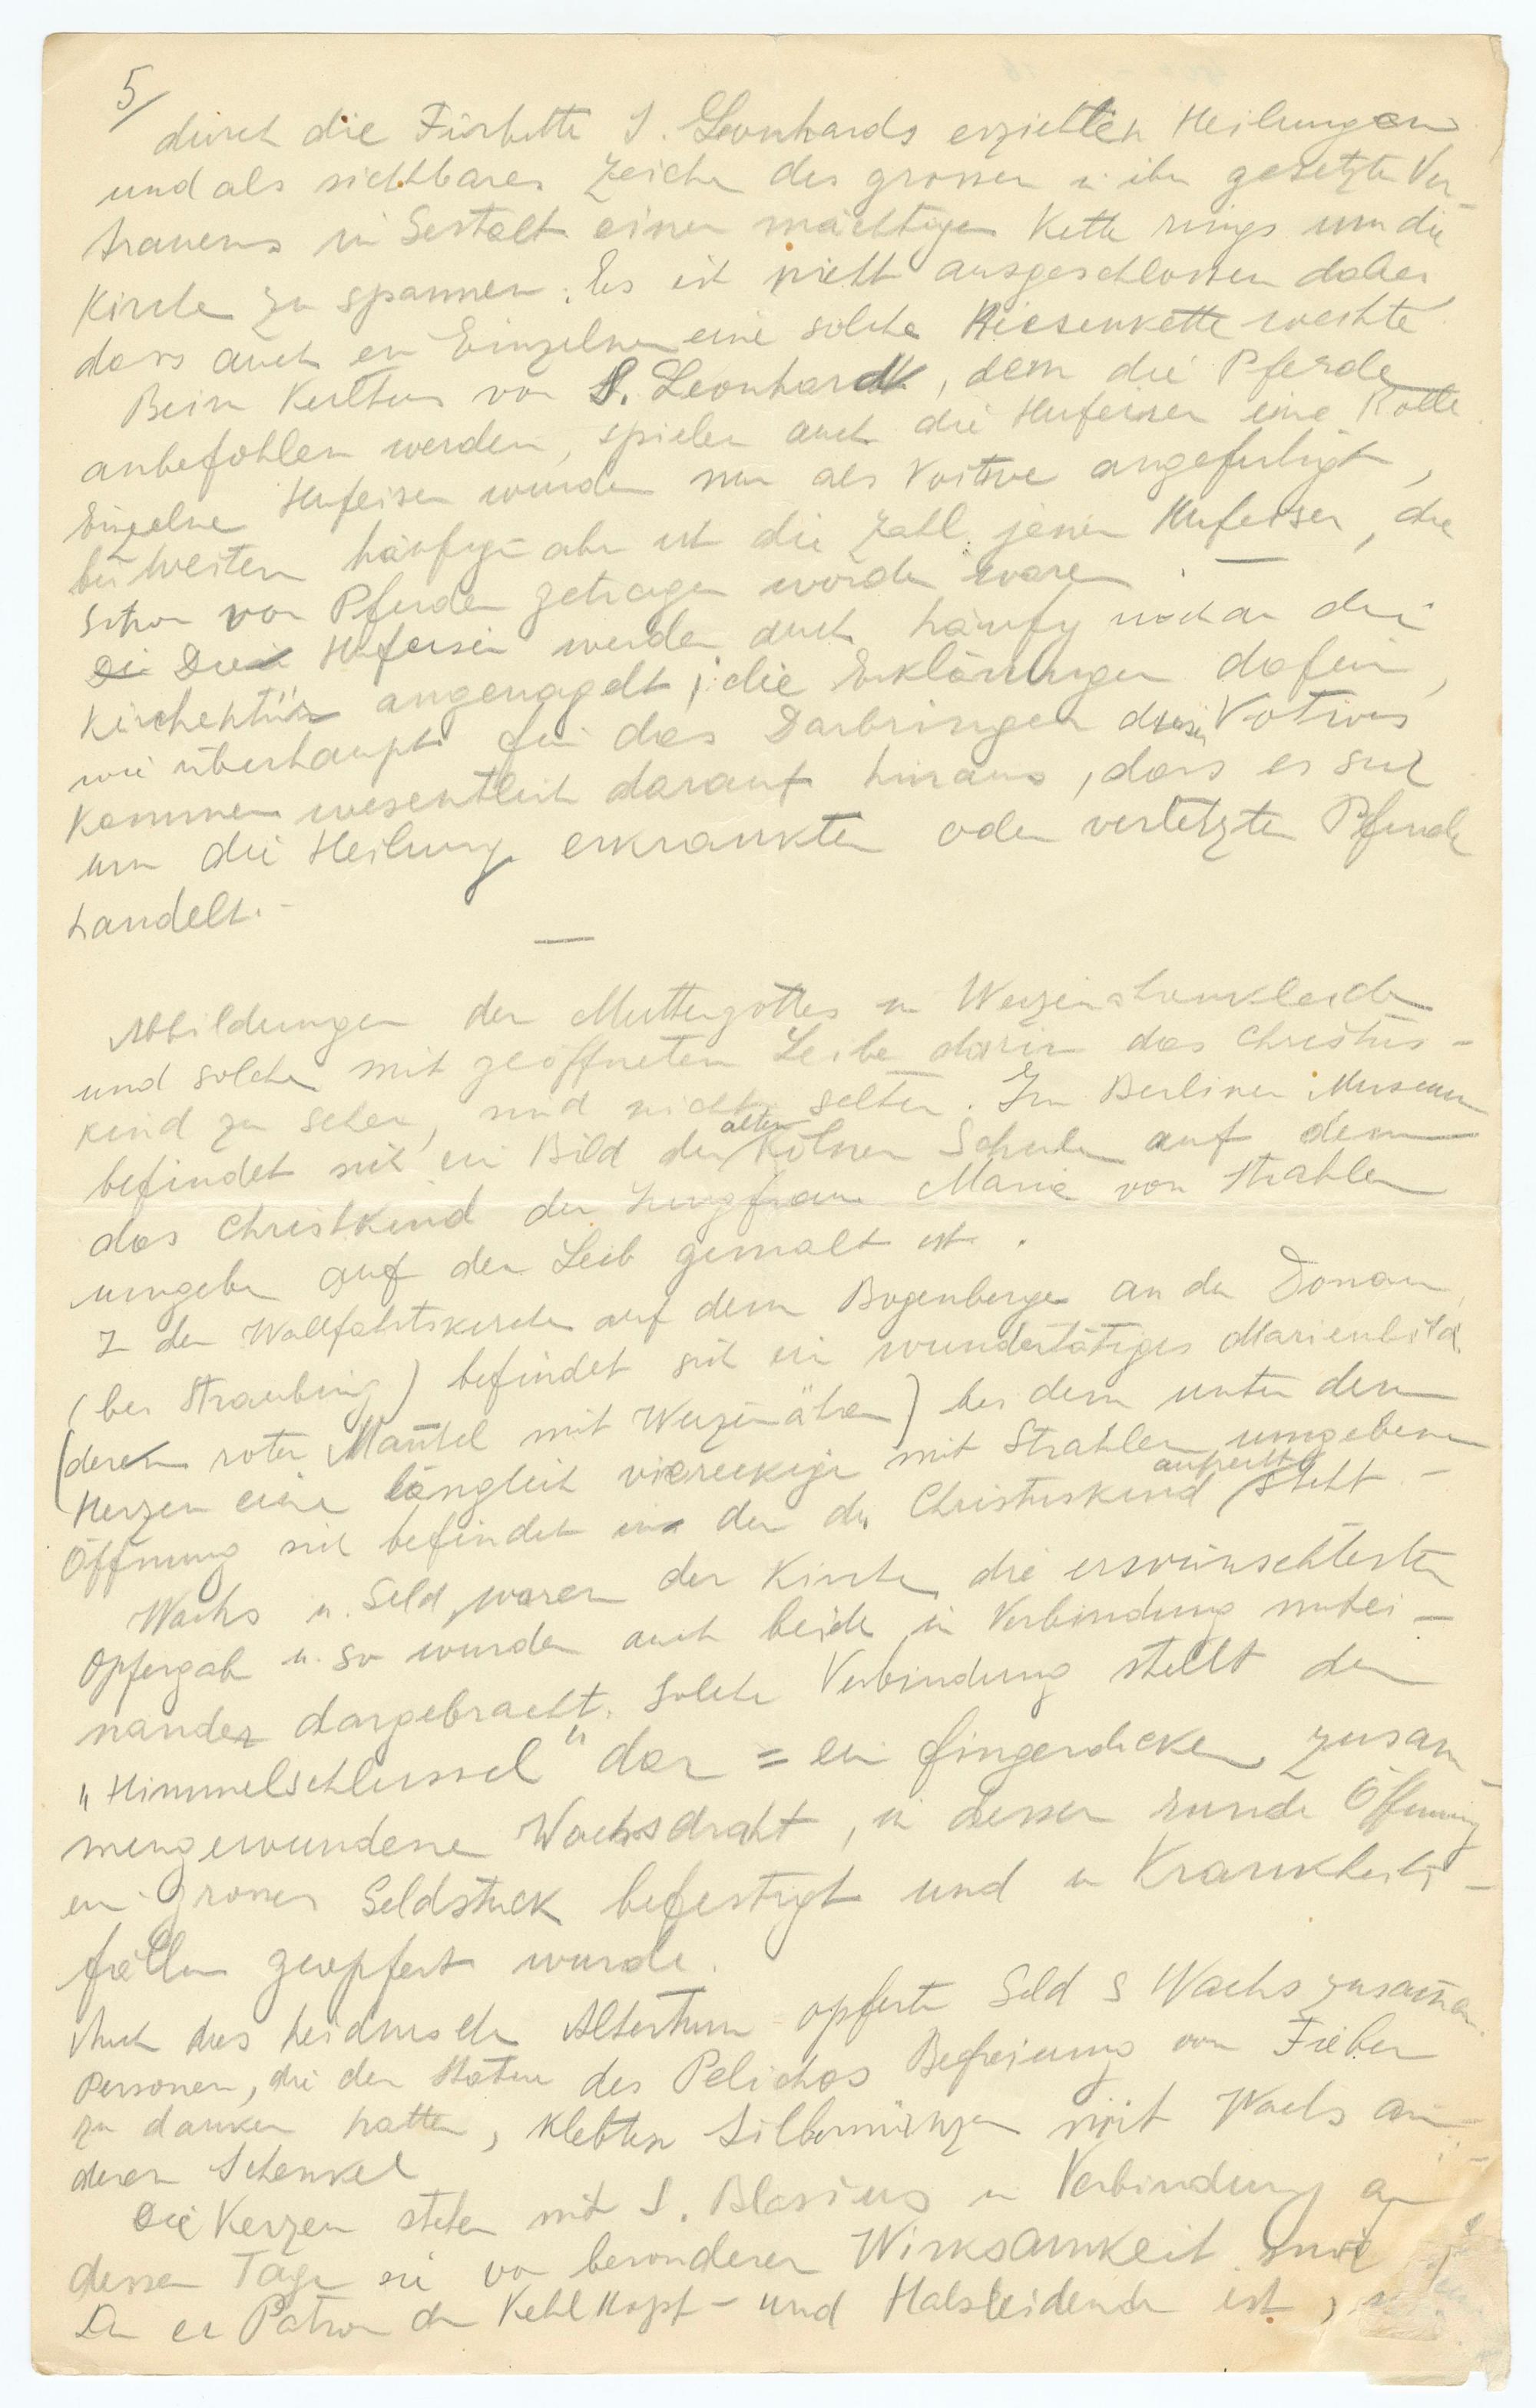 5/
durch die Fürbitte S. Leonhards erzielten Heilungen
und als sichtbares Zeichen des grossen in ihn gesetzten Ver-
trauens in Gestalt einer mächtigen Kette rings um die
Kirche zu spannen. Es ist nicht ausgeschlossen dabei,
dass auch ein Einzelner eine solche Riesenkette weihte.
Beim Kultus von S. Leonhard, dem die Pferde
anbefohlen werden, spielen auch die Hufeisen eine Rolle
Einzelne Hufeisen wurden nur als Votive angefertigt,
bei weitem häufiger aber ist die Zahl jener Hufeisen, die
schon von Pferden getragen worden waren. —
Die Hufeisen werden auch häufig noch an die
Kirchentür angenagelt; die Erklärungen dafür,
wie überhaupt für das Darbringen dieser Votives
kommen wesentlich darauf hinaus, dass es sich
um die Heilung erkrankter oder verletzter Pferde
handelt.-
—
Abbildungen der Muttergottes im Weizenährenkleide
und solche mit geöffneten Leibe darin das Christus-
kind zu sehen, sind nicht selten. Im Berliner Museum
befindet sich ein Bild der alten Kölner Schule auf dem
das Christkind der Jungfrau Maria von Strahlen
umgeben auf den Leib gemalt ist.
In der Wallfahrtskirche auf dem Bogenberge an der Donau
(bei Straubing) befindet sich ein wundertätiges Marienbild
(deren roter Mantel mit Weizenähren) bei dem unter dem
Herzen eine länglich viereckige mit Strahlen umgebene
Öffnung sich befindet in der das Christuskind aufrecht steht -
Wachs u. Geld waren der Kirche die erwünschtesten
Opfergab u. so wurden auch beide in Verbindung mitei-
nander dargebracht. Solche Verbindung stellt der
"Himmelschlüssel" dar = ein fingerdicker zusam-
mengewundene Wachsdraht, in dessen runde Öffnung
ein grosses Geldstück befestigt und in Krankheits-
fällen geopfert wurde.
Auch das heidnische Altertum opferte Geld & Wachs zusammen.
Personen, die der Statue des Pelichos Befreiung vom Fieber
zu danken hatten, klebten Silbermünzen mit Wachs an
deren Schenkel
Die Kerzen stehen mit S. Blasius in Verbindung an
dessen Tage sie von besonderer Wirksamkeit sind
Da er Patron der Kehlkopf- und Halsleidende ist,